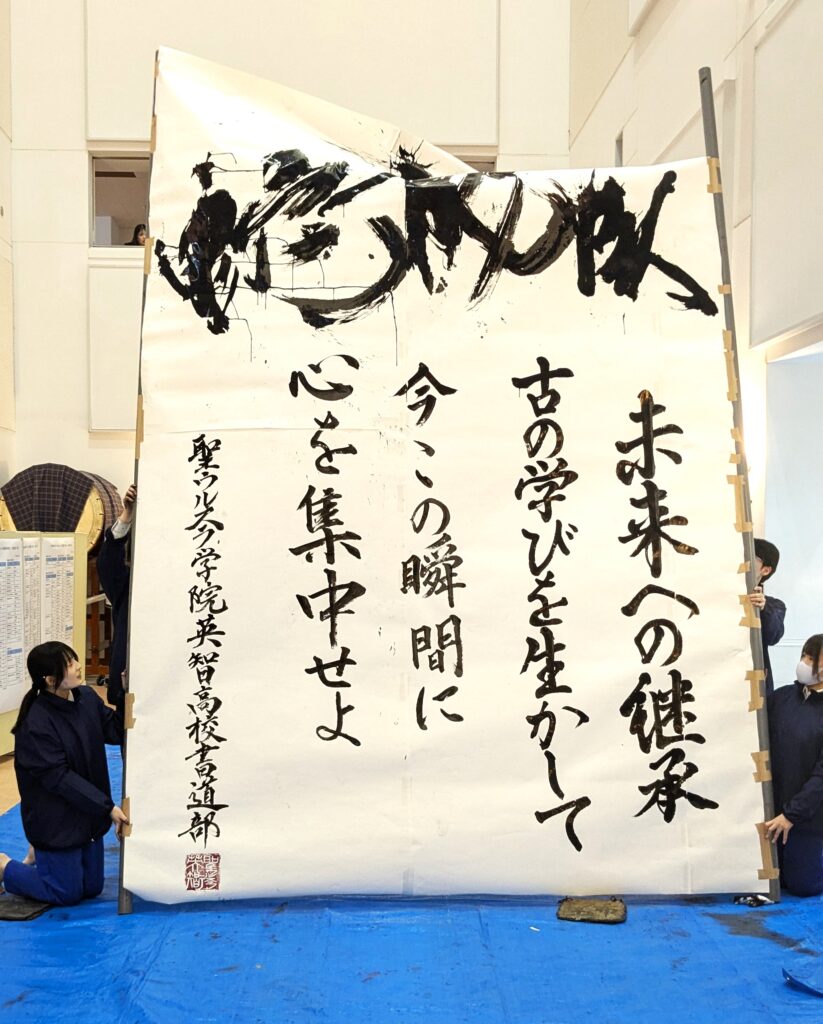 未来への継承
古の学びを生かして
今この瞬間に
心を集中せよ
聖ウルスラ学院英智高校書道部